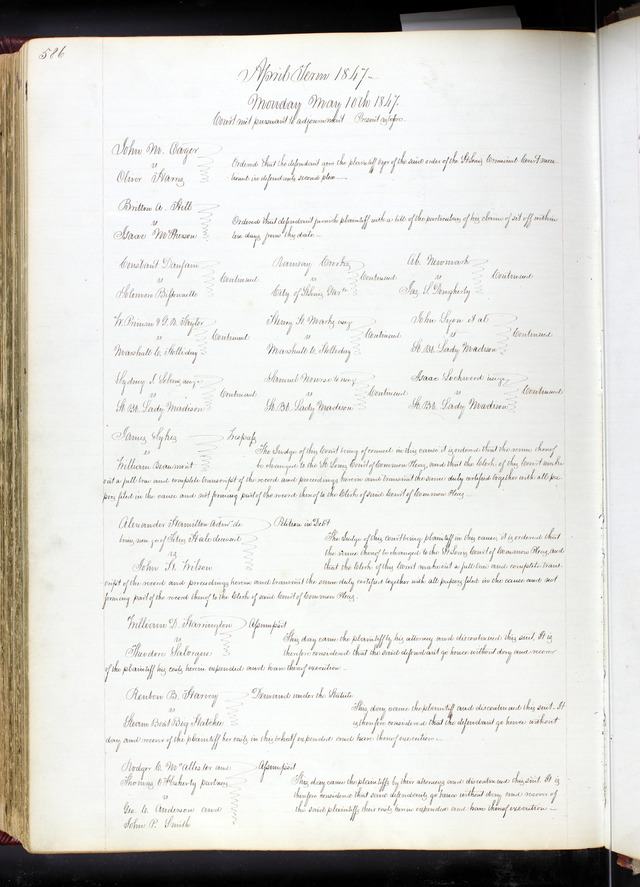 586
April Term 1847
Monday May 10th 1847.
Court met pursuant to adjournment Present as before
John M.
vs
Oliver Harris
Ordered that the defendant give the plaintiff oyer of the said order of the St Louis Criminal Court
in defendants second plea
Britton A. Hill
vs
Isaac McPherson
Ordered that defendant furnish plaintiff with a bill of the particulars of his claim of set off within
ten days from this date
Constant
vs
Solomon
Continued
Ramsay Crooks
vs
City of St Louis
Continued
Ab. Newmark
vs
Jas. S. Dougherty
Continued
W. & G. W. Taylor
vs
Marshall & Holleday
Continued
Henry
vs
Marshall & Holleday
Continued
John Lyon et al
vs
St. Bt. Lady Madison
Continued
Sydney
vs
St. Bt. Lady Madison
Continued
Samuel
vs
St. Bt. Lady Madison
Continued
Isaac Lockwood
vs
St. Bt. Lady Madison
Continued
James Sykes
vs
William Beaumont
Trespass
The Judge of this Court being of counsel in this cause it is ordered that the venue thereof
be changed to the St. Louis Court of Common Pleas, and that the Clerk of this Court make
out a full true and complete transcript of the record and proceedings herein and transmit the same duly certified together with all pa-
pers filed in the cause and not forming part of the record thereof to the Clerk of said Court of Common Pleas
Alexander Hamilton Admr. de
bonis non of deceased
vs
John H. Wilson
Petition in Debt
The Judge of this Court being plaintiff in this cause, it is ordered that
the venue thereof be changed to the St Louis Court of Common Pleas, and
that the Clerk of this Court make out a full true and complete tran-
script of the record and proceedings herein and transmit the same duly certified together with all papers filed in the cause and not
forming part of the record thereof to the Clerk of said Court of Common Pleas.
William D. Harrington
vs
Theodore
Assumpsit
This day came the plaintiff by his attorney and discontinued this suit. It is
therefore considered that the said defendant go hence without day and recover
of the plaintiff his costs herein expended and have thereof execution
Reuben B. Harvey
vs
Steam Boat Big Hatchee
Demand under the Statute
This day came the plaintiff and discontinued this suit. It
is therefore considered that the defendant go hence without
day and recover of the plaintiff her costs in this behalf expended and have thereof execution
Rodger C. McAllister and
Thomas partners
vs
Geo. W. Anderson and
John P. Smith
Assumpsit
This day came the plaintiffs by their attorney and discontinued this suit. It is
therefore considered that said defendants go hence without day and recover of
the said plaintiffs their costs herein expended and have thereof execution